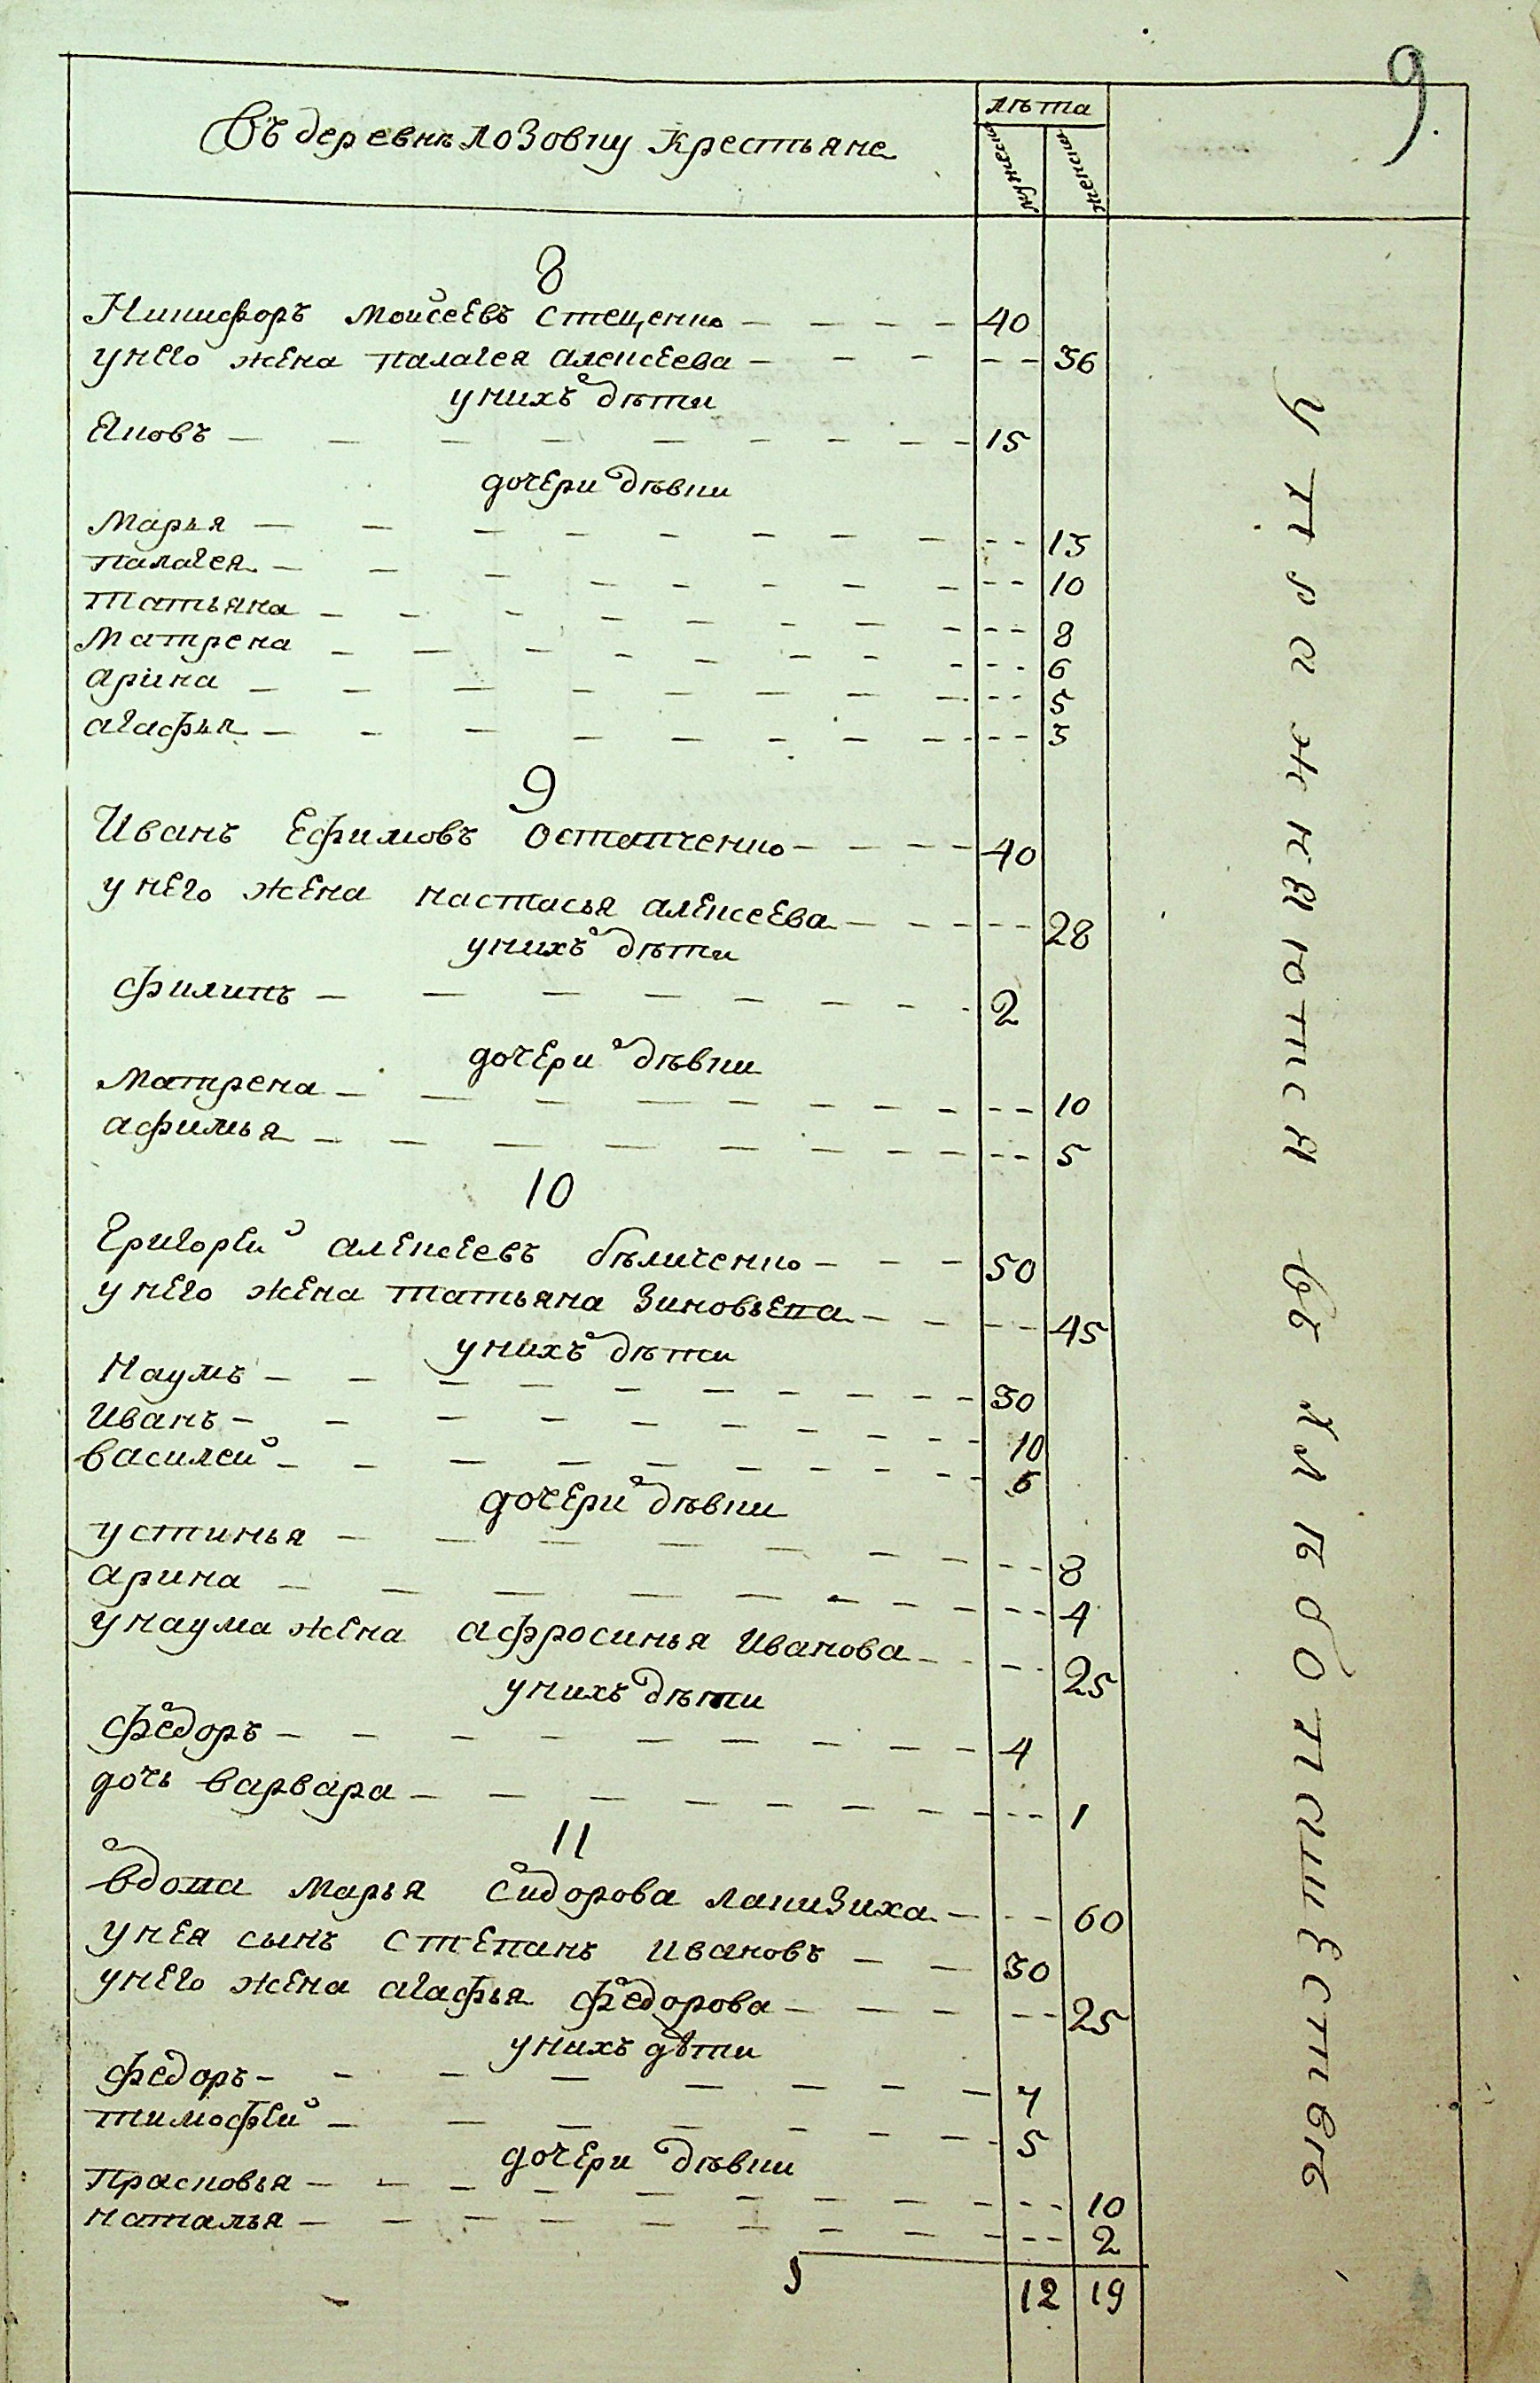 9.
Въ деревнѣ лозовку крестьяне
лѣта
мужеска
женска
8
Никифоръ Моисѐевъ Стеценко 40
у него жена палагея алексеева 36
у нихъ дѣти
Яковъ 15
дочери дѣвки
Марья 13
палагея 10
татьяна 8
Матрена 6
арина 5
агафья 3
9
Иванъ Ефимовъ Остапченко 40
у него жена настасья алексеева 28
у нихъ дѣти
филипъ 2
дочери дѣвки
Матрена 10
афимья 5
10
Григорей алексеевъ бѣличенко 50
у него жена татьяна Зиновьева 45
у нихъ дѣти
Наумъ 30
Иванъ 10
василей 6
дочери дѣвки
устинья 8
арина 4
у наума жена афросинья Иванова 25
у нихъ дѣти
фѐдоръ 4
дочь варвара 1
11
вдова Марья Сидорова лапизиха 60
у нея сынъ степанъ ивановъ 30
у него жена агафья фѐдорова 25
у нихъ дѣти
федоръ 7
тимофей 5
дочери дѣвки
прасковья 10
наталья 2
12 19
упражняются въ хлебопашествѣ